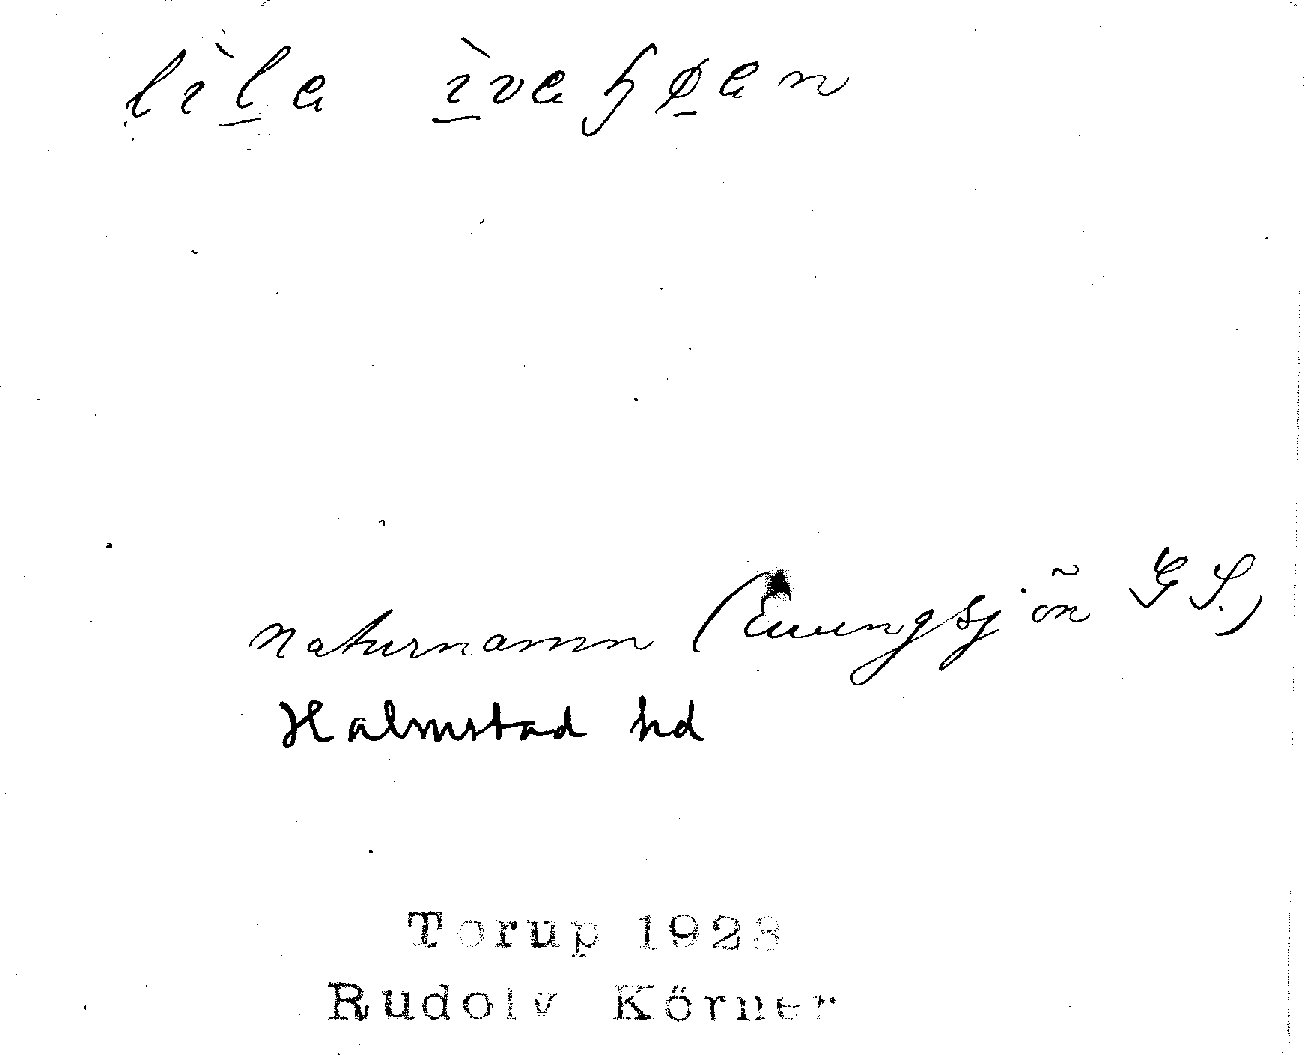 lìla ìvaɧøan
naturnamn (Evungsjön GS.)
Halmstad hd
Torup 1923
Rudolv Körner